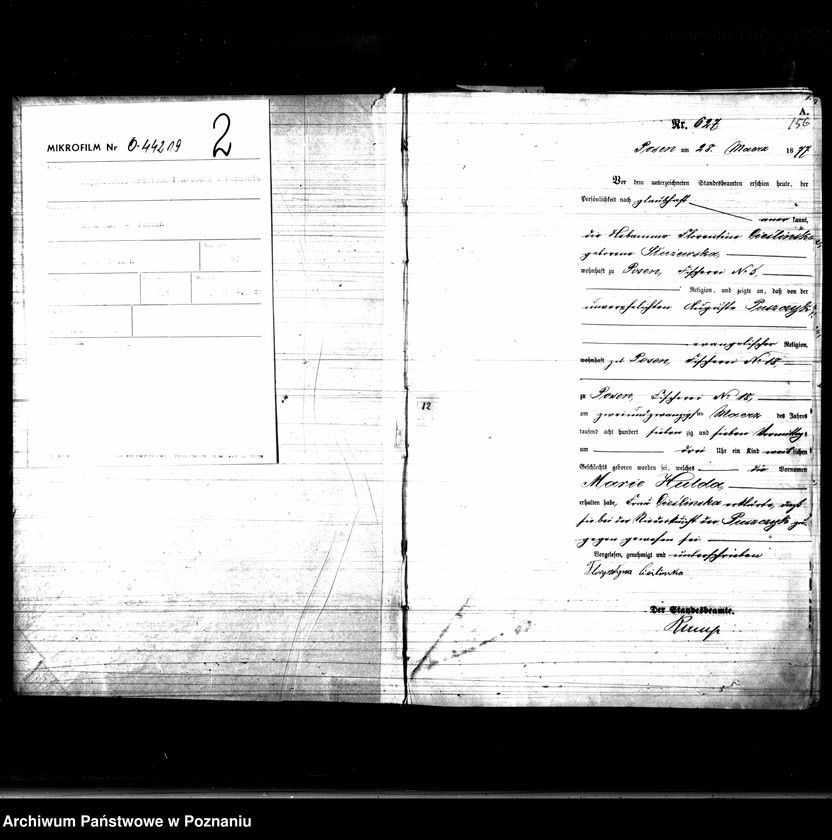 MIKROFILM Nr O-44219
2
A.
156
Nr. 627
Posen am 28. Maerz 1877
Vor dem unterzeichneten Standesbeamten erschien heute, der
Persönlichkeit nach glaubhaft
aner kannt,
die Hebamme Florentine Cieślinska
geborene
wohnhaft zu Posen, Fischerei No 5,
Religion, und zeigte an, daß von der
unverehelichten Auguste Puszczyk,
evangelischer Religion,
wohnhaft zu Posen, Fischerei No 18,
12
zu Posen, Fischerei No 18,
am zweiundzwanzigsten Maerz des Jahres
tausend acht hundert sieben zig und sieben Vormittags
um drei Uhr ein Kind weiblichen
Geschlechts geboren worden sei, welches die Vornamen
Marie Hulda,
erhalten habe, Frau Cieślinska erklärte, daß
sie bei der Niederkunft der Puszczyk zu-
gegen gewesen sei
Vorgelesen, genehmigt und unterschrieben
Der Standesbeamte.
Archiwum Państwowe w Poznaniu